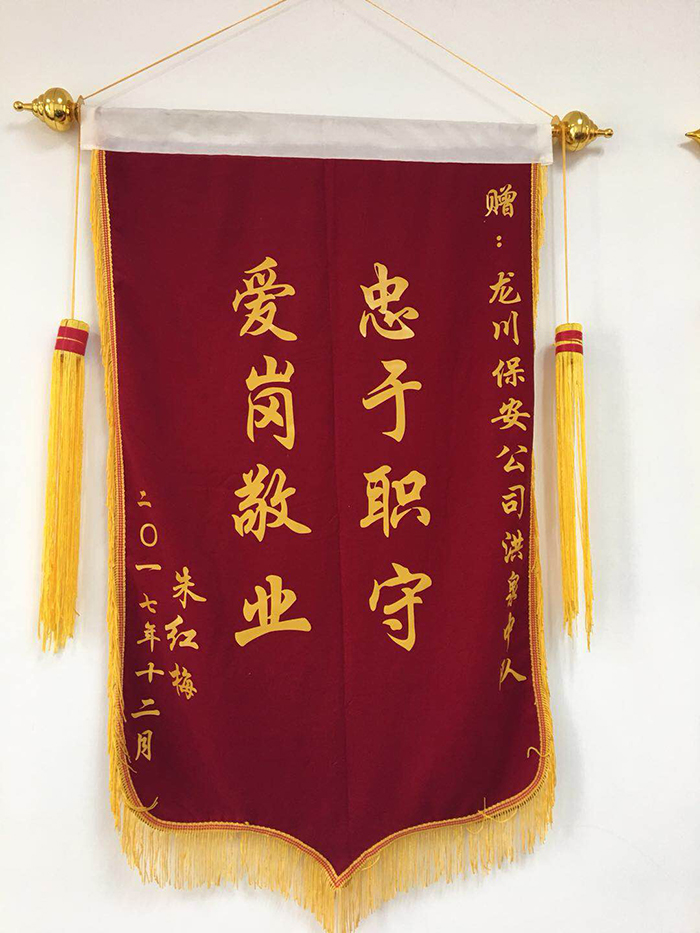 赠：龙川保安公司洪泉中队
忠于职守
爱岗敬业
朱红梅
二〇一七年十二月